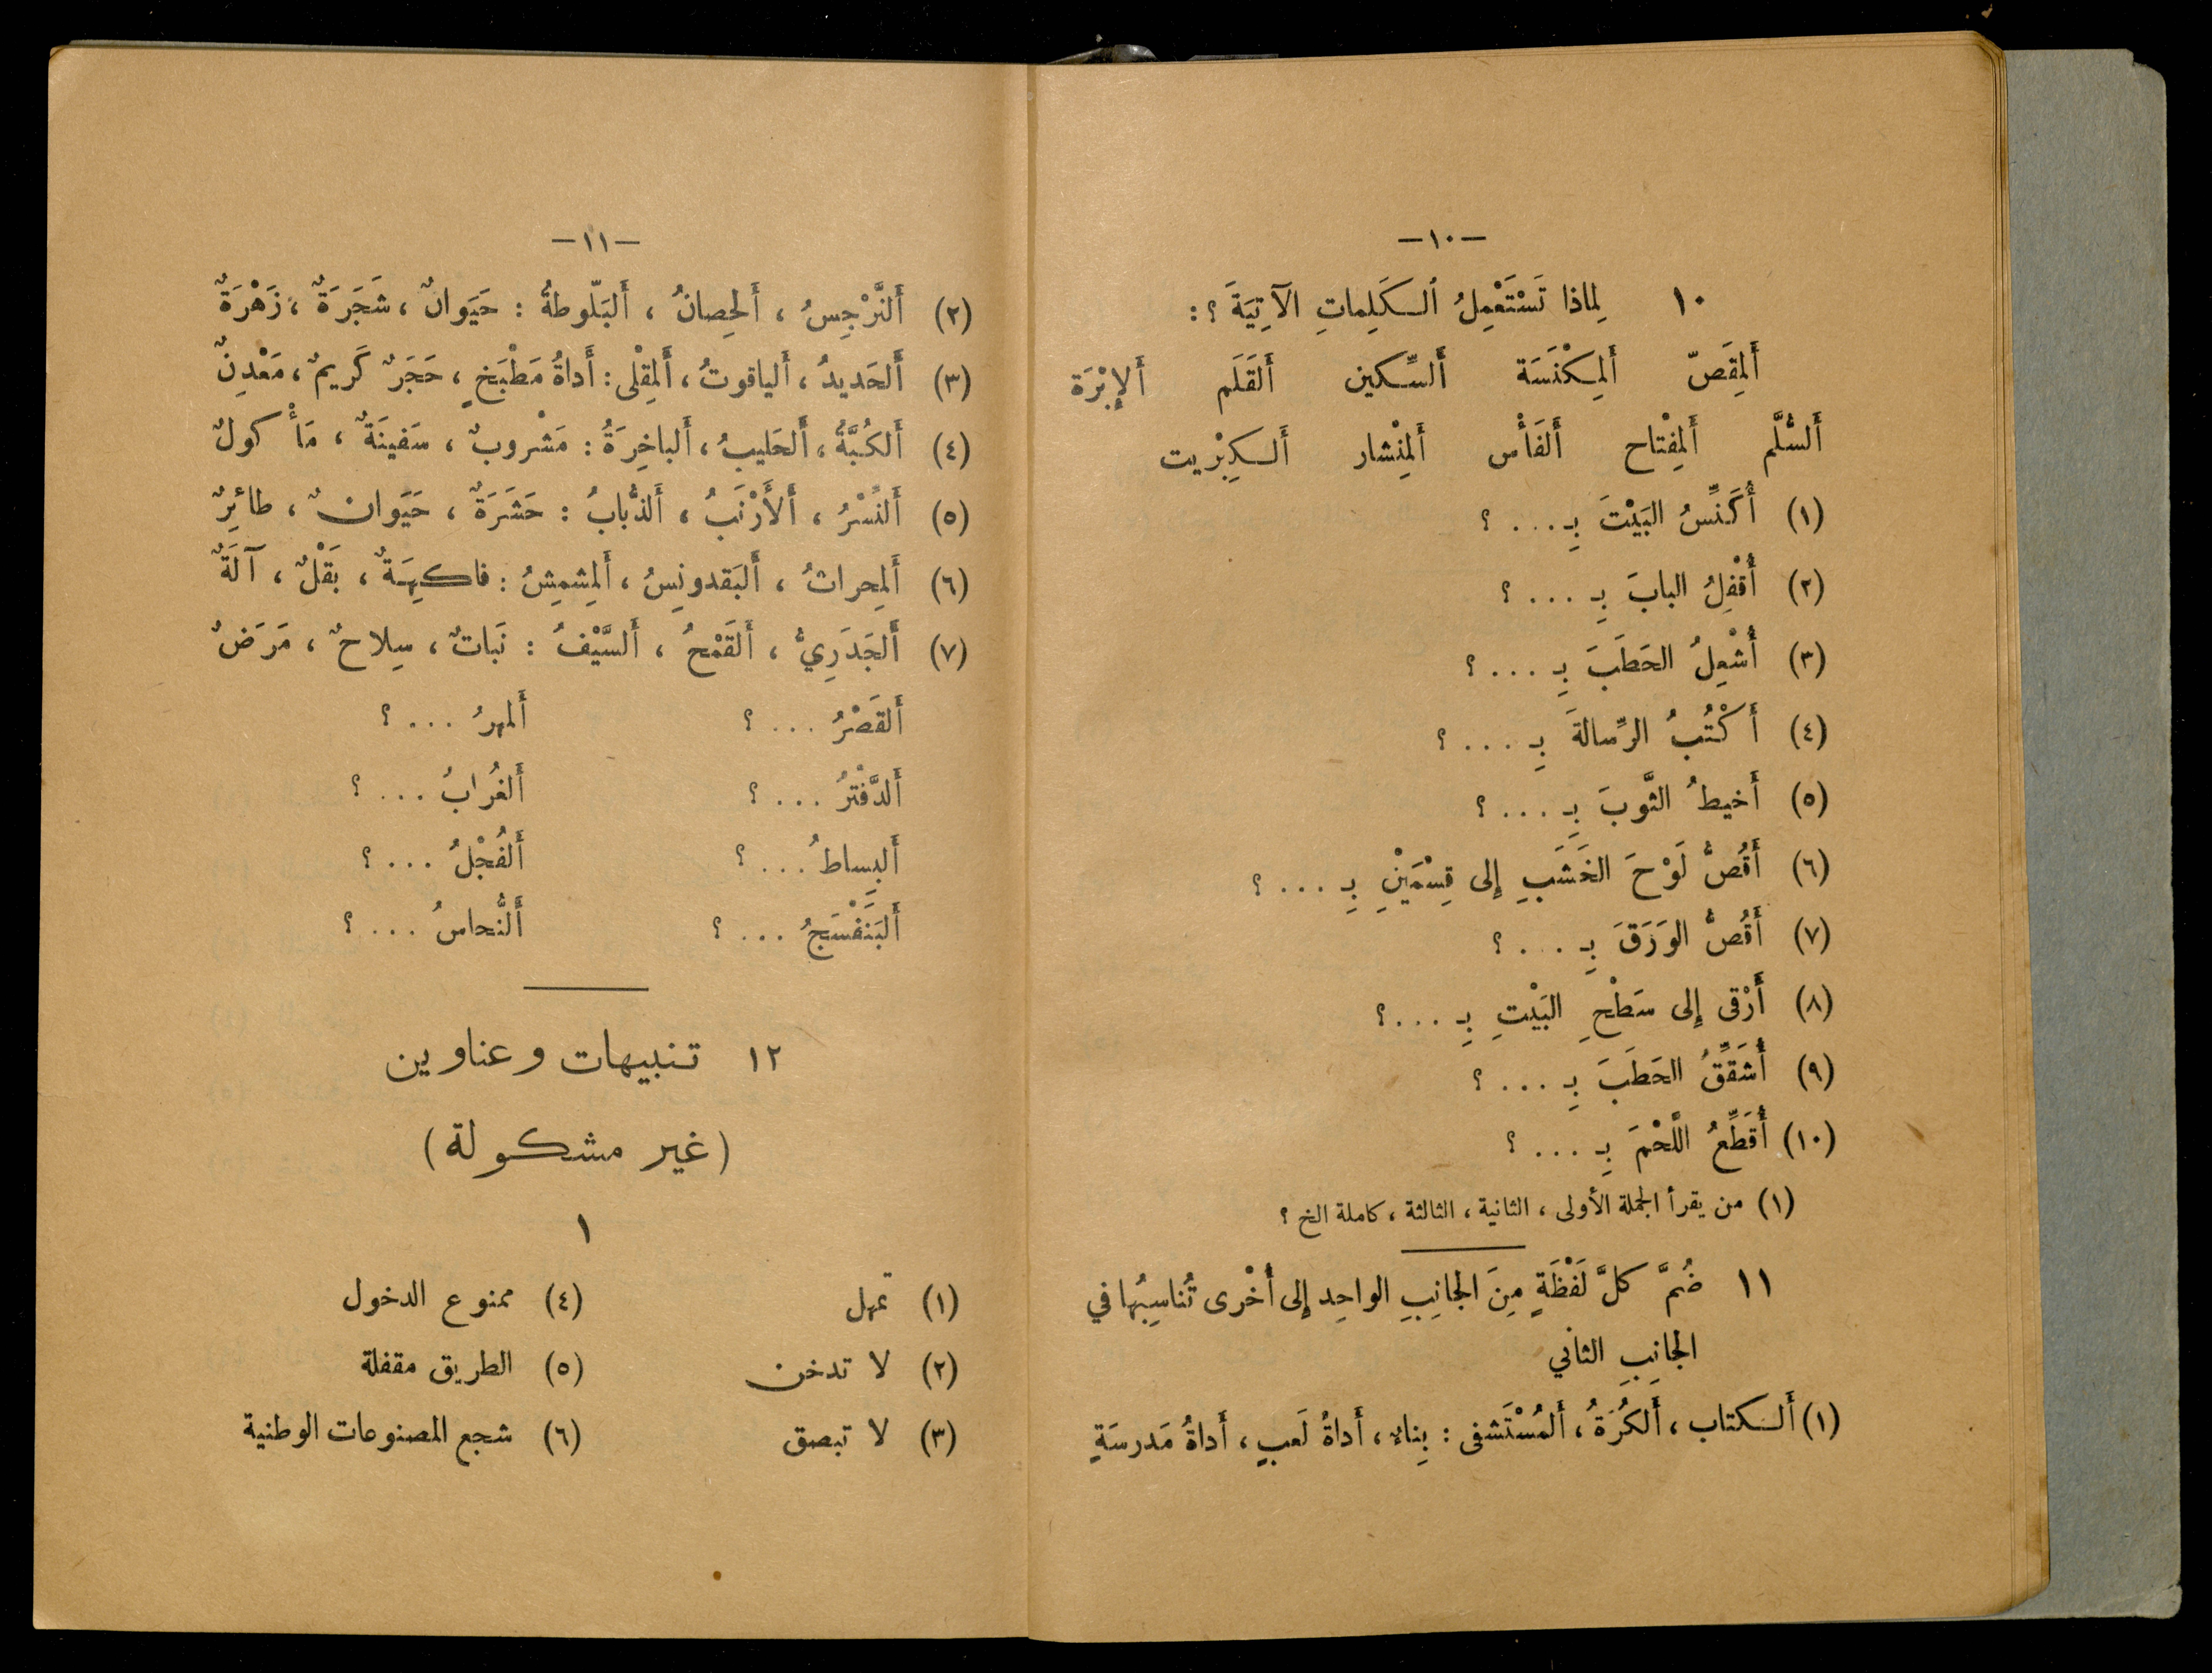 —١٠—
١٠ لِماذا تَسْتَعْمِلُ ٱلكَلِماتِ الآتِيَةَ ؟ :
أَلمِقَصّ أَلمِكْنَسَة أَلسِّكين أَلقَلَم أَلإِبْرَة
أَلسُّلَّم أَلمِفْتاح أَلفَأْس أَلمِنْشار أَلكِبْريت
(١) أُكَنِّسُ البَيْتَ بِـ ... ؟
(٢) أُقْفِلُ البابَ بِـ ... ؟
(٣) أُشْعِلُ الحَطَبَ بِـ ... ؟
(٤) أَكْتُبُ الرِّسالةَ بِـ ... ؟
(٥) أَخيطُ الثَّوبَ بِـ ... ؟
(٦) أَقُصُّ لَوْحَ الخَشَبِ إِلى قِسْمَيْنِ بِـ ... ؟
(٧) أَقُصُّ الوَرَقَ بِـ ... ؟
(٨) أَرْقى إِلى سَطْحِ البَيْتِ بِـ ... ؟
(٩) أُشَقِّقُ الحَطَبَ بِـ ... ؟
(١٠) أُقَطِّعُ اللَّحْمَ بِـ ... ؟
(١) من يقرأ الجملة الأولى ، الثانية ، الثالثة ، كاملة الخ ؟
١١ ضُمَّ كلَّ لَفْظَةٍ مِنَ الجانِبِ الواحِد إِلى أُخْرى تُناسِبُها في
الجانِبِ الثاني
(١) أَلكتاب ، أَلكُرَةُ ، أَلمُسْتَشفى : بِناء ، أَداةُ لَعبٍ ، أَداةُ مَدرسَةٍ
—١١—
(٢) أَلنَّرْجِسُ ، أَلحِصانُ ، أَلبَلّوطةُ : حَيَوانٌ ، شَجَرَةٌ ، زَهْرَةٌ
(٣) أَلحَديدُ ، أَلياقوتُ ، أَلمِقْلى : أَداةُ مَطْبَخٍ ، حَجَرٌ كَريمٌ ، مَعْدِنٌ
(٤) أَلكُبَّةُ ، أَلحَليبُ ، أَلباخِرَةُ : مَشْروبٌ ، سَفينَةٌ ، مَأْكولٌ
(٥) أَلنَّسْرُ ، أَلأَرْنَبُ ، أَلذُّبابُ : حَشَرَةٌ ، حَيَوانٌ ، طائِرٌ
(٦) أَلمِحراثُ ، أَلبَقدونِسُ ، أَلمِشمِشُ : فاكِهَةٌ ، بَقْلٌ ، آلَةٌ
(٧) أَلجَدَرِيُّ ، أَلقَمْحُ ، أَلسَّيْفُ : نَباتٌ ، سِلاحٌ ، مَرَضٌ
أَلقَصْرُ ... ؟ أَلمهرُ ... ؟
أَلدَّفْتَرُ ... ؟ أَلغُرابُ ... ؟
أَلبِساطُ ... ؟ أَلفُجْلُ ... ؟
أَلبَنَفْسَجُ ... ؟ أَلنُّحاسُ ... ؟
١٢ تنبيهات وعناوين
(غير مشكولة)
١
(١) تمهل (٤) ممنوع الدخول
(٢) لا تدخن (٥) الطريق مقفلة
(٣) لا تبصق (٦) شجع المصنوعات الوطنية